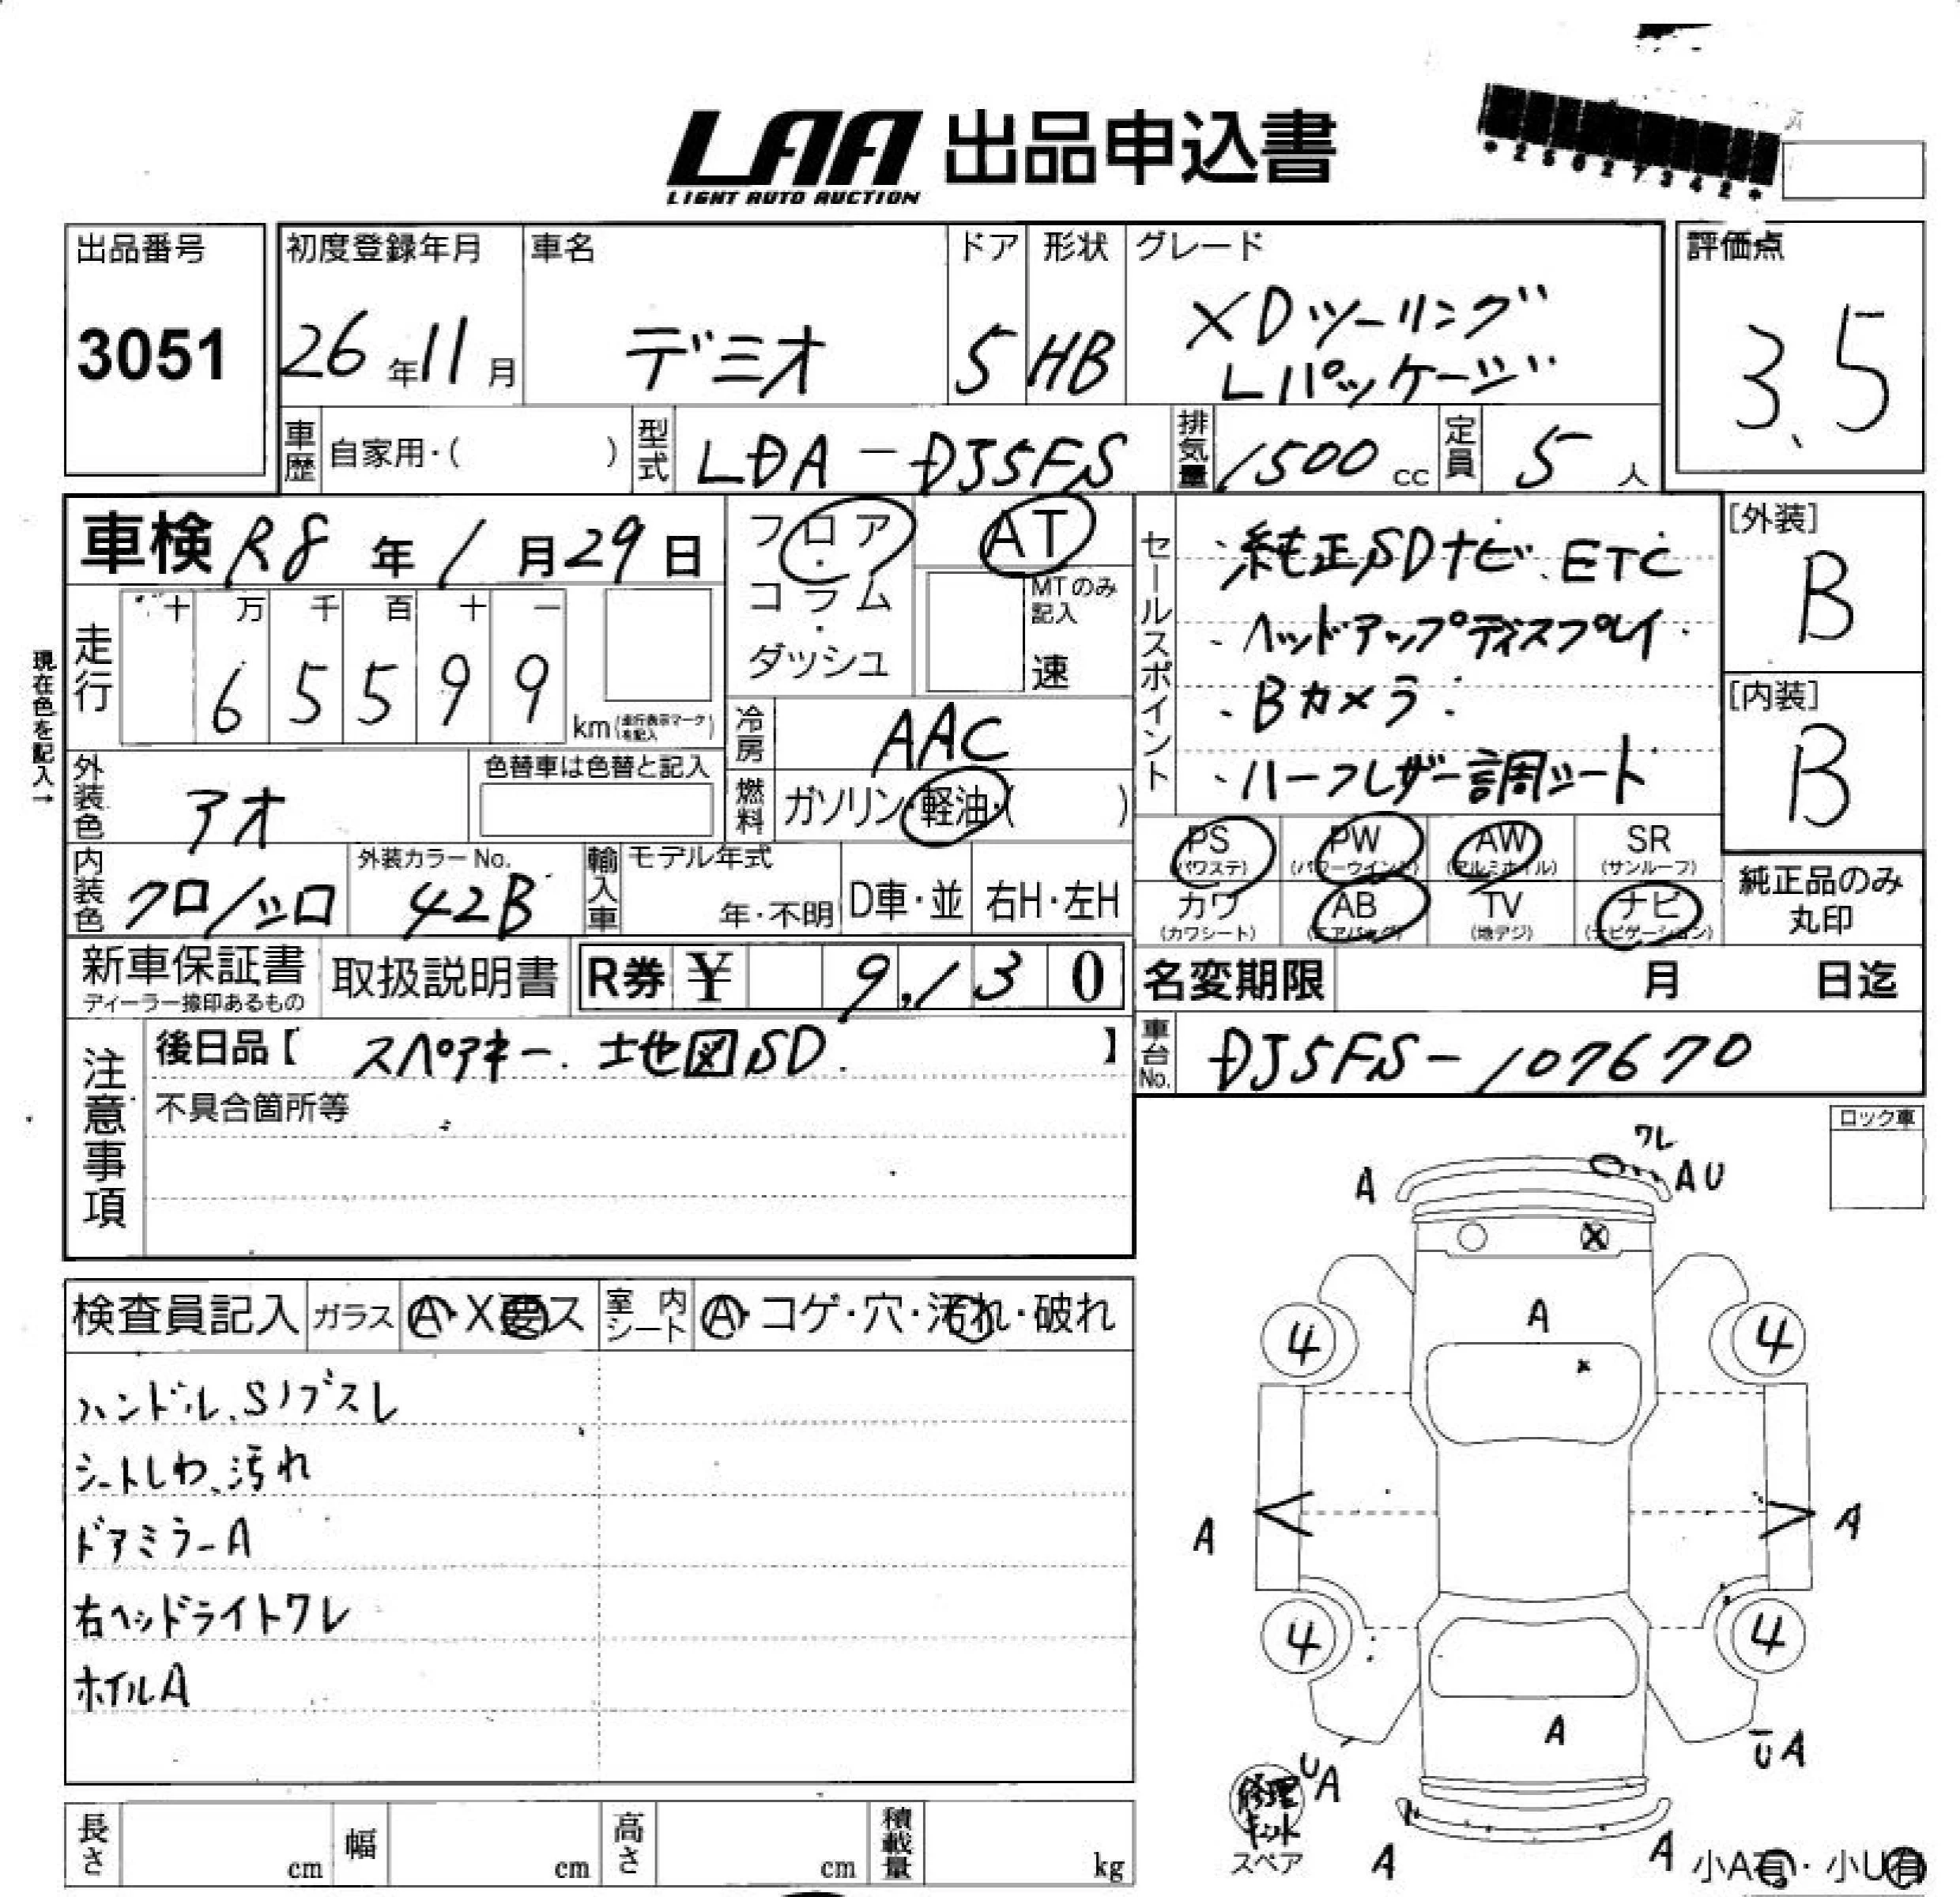 LAA 出品申込書
LIGHT AUTO AUCTION
*25027342*
出品番号
3051
初度登録年月
26年11月
車名
デミオ
ドア
5
形状
HB
グレード
XDツーリング
Lパッケージ
評価点
3.5
車歴 自家用・( )
型式 LDA-DJ5FS
排気量 1500 cc
定員 5 人
車検 R8年1月29日
フロア・コラム・ダッシュ
AT
MTのみ記入
速
走行
十 万 千 百 十 一
6 5 5 9 9
km (走行表示マークを記入)
現在色を記入→
冷房 AAC
外装色 アオ
色替車は色替と記入
燃料 ガソリン・軽油・( )
内装色 クロ/シロ
外装カラーNo.
42B
輸入車 モデル年式
年・不明
D車・並
右H・左H
セールスポイント
・純正SDナビ、ETC
・ヘッドアップディスプレイ・
・Bカメラ・
・ハーフレザー調シート
[外装]
B
[内装]
B
PS (パワステ)
PW (パワーウインド)
AW (アルミホイル)
SR (サンルーフ)
カワ (カワシート)
AB (エアバッグ)
TV (地デジ)
ナビ (ナビゲーション)
純正品のみ
丸印
新車保証書
ディーラー捺印あるもの
取扱説明書
R券 ¥ 9,130
名変期限 月 日迄
車台No. DJ5FS-107670
注意事項
後日品【 スペアキー、地図SD. 】
不具合箇所等
ロック車
検査員記入
ガラス Ⓐ・X要ス
室内シート Ⓐ・コゲ・穴・汚れ・破れ
ハンドル、Sノブスレ
シートしわ、汚れ
ドアミラーA
右ヘッドライトワレ
ホイルA
ワレ
A
AU
X
A
4
4
x
A
A
4
4
A
UA
UA
修理キット
スペア
A
A
小A有・小U有
長さ cm
幅 cm
高さ cm
積載量 kg